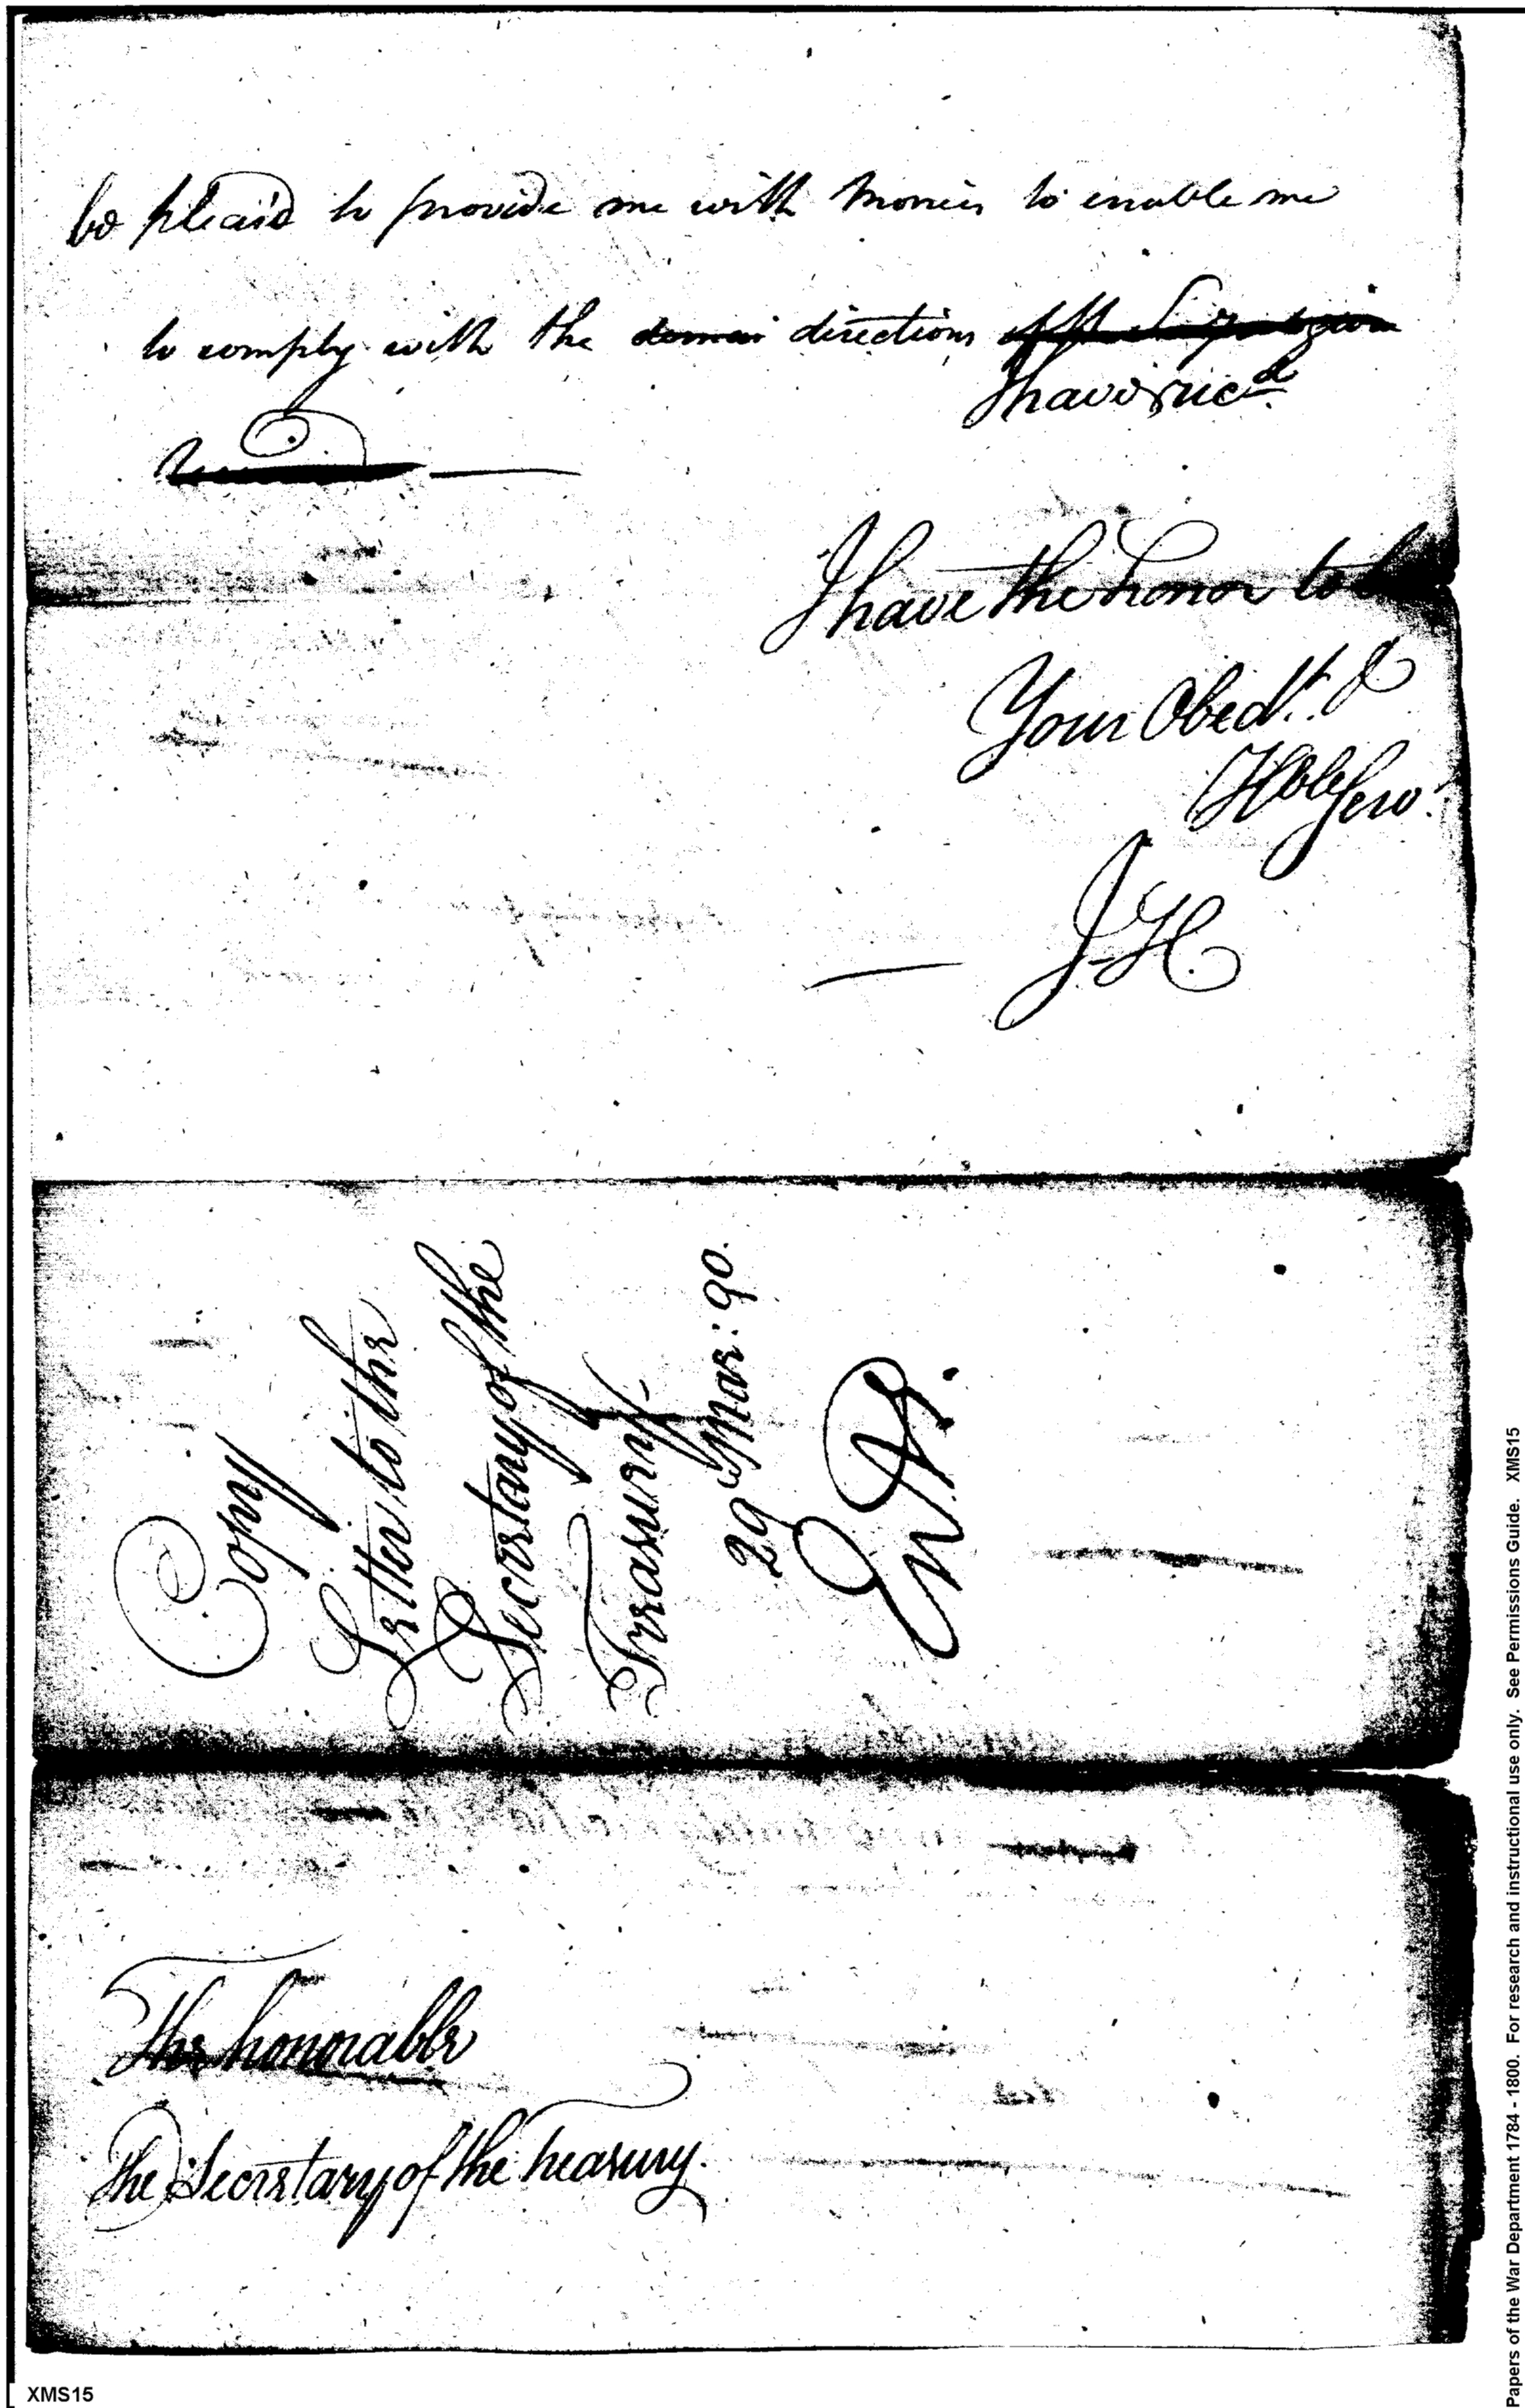 be pleasd to provide me with monies to enable me
to comply with the directions
I have rec.d
I have the honor to be
Your Obed.t &
Hble Serv.t
J. H.
Copy
Letter to the
Secretary of the
Treasury
29 Mar: 90.
The honorable
The Secretary of the treasury.
XMS15
Papers of the War Department 1784 - 1800. For research and instructional use only. See Permissions Guide. XMS15